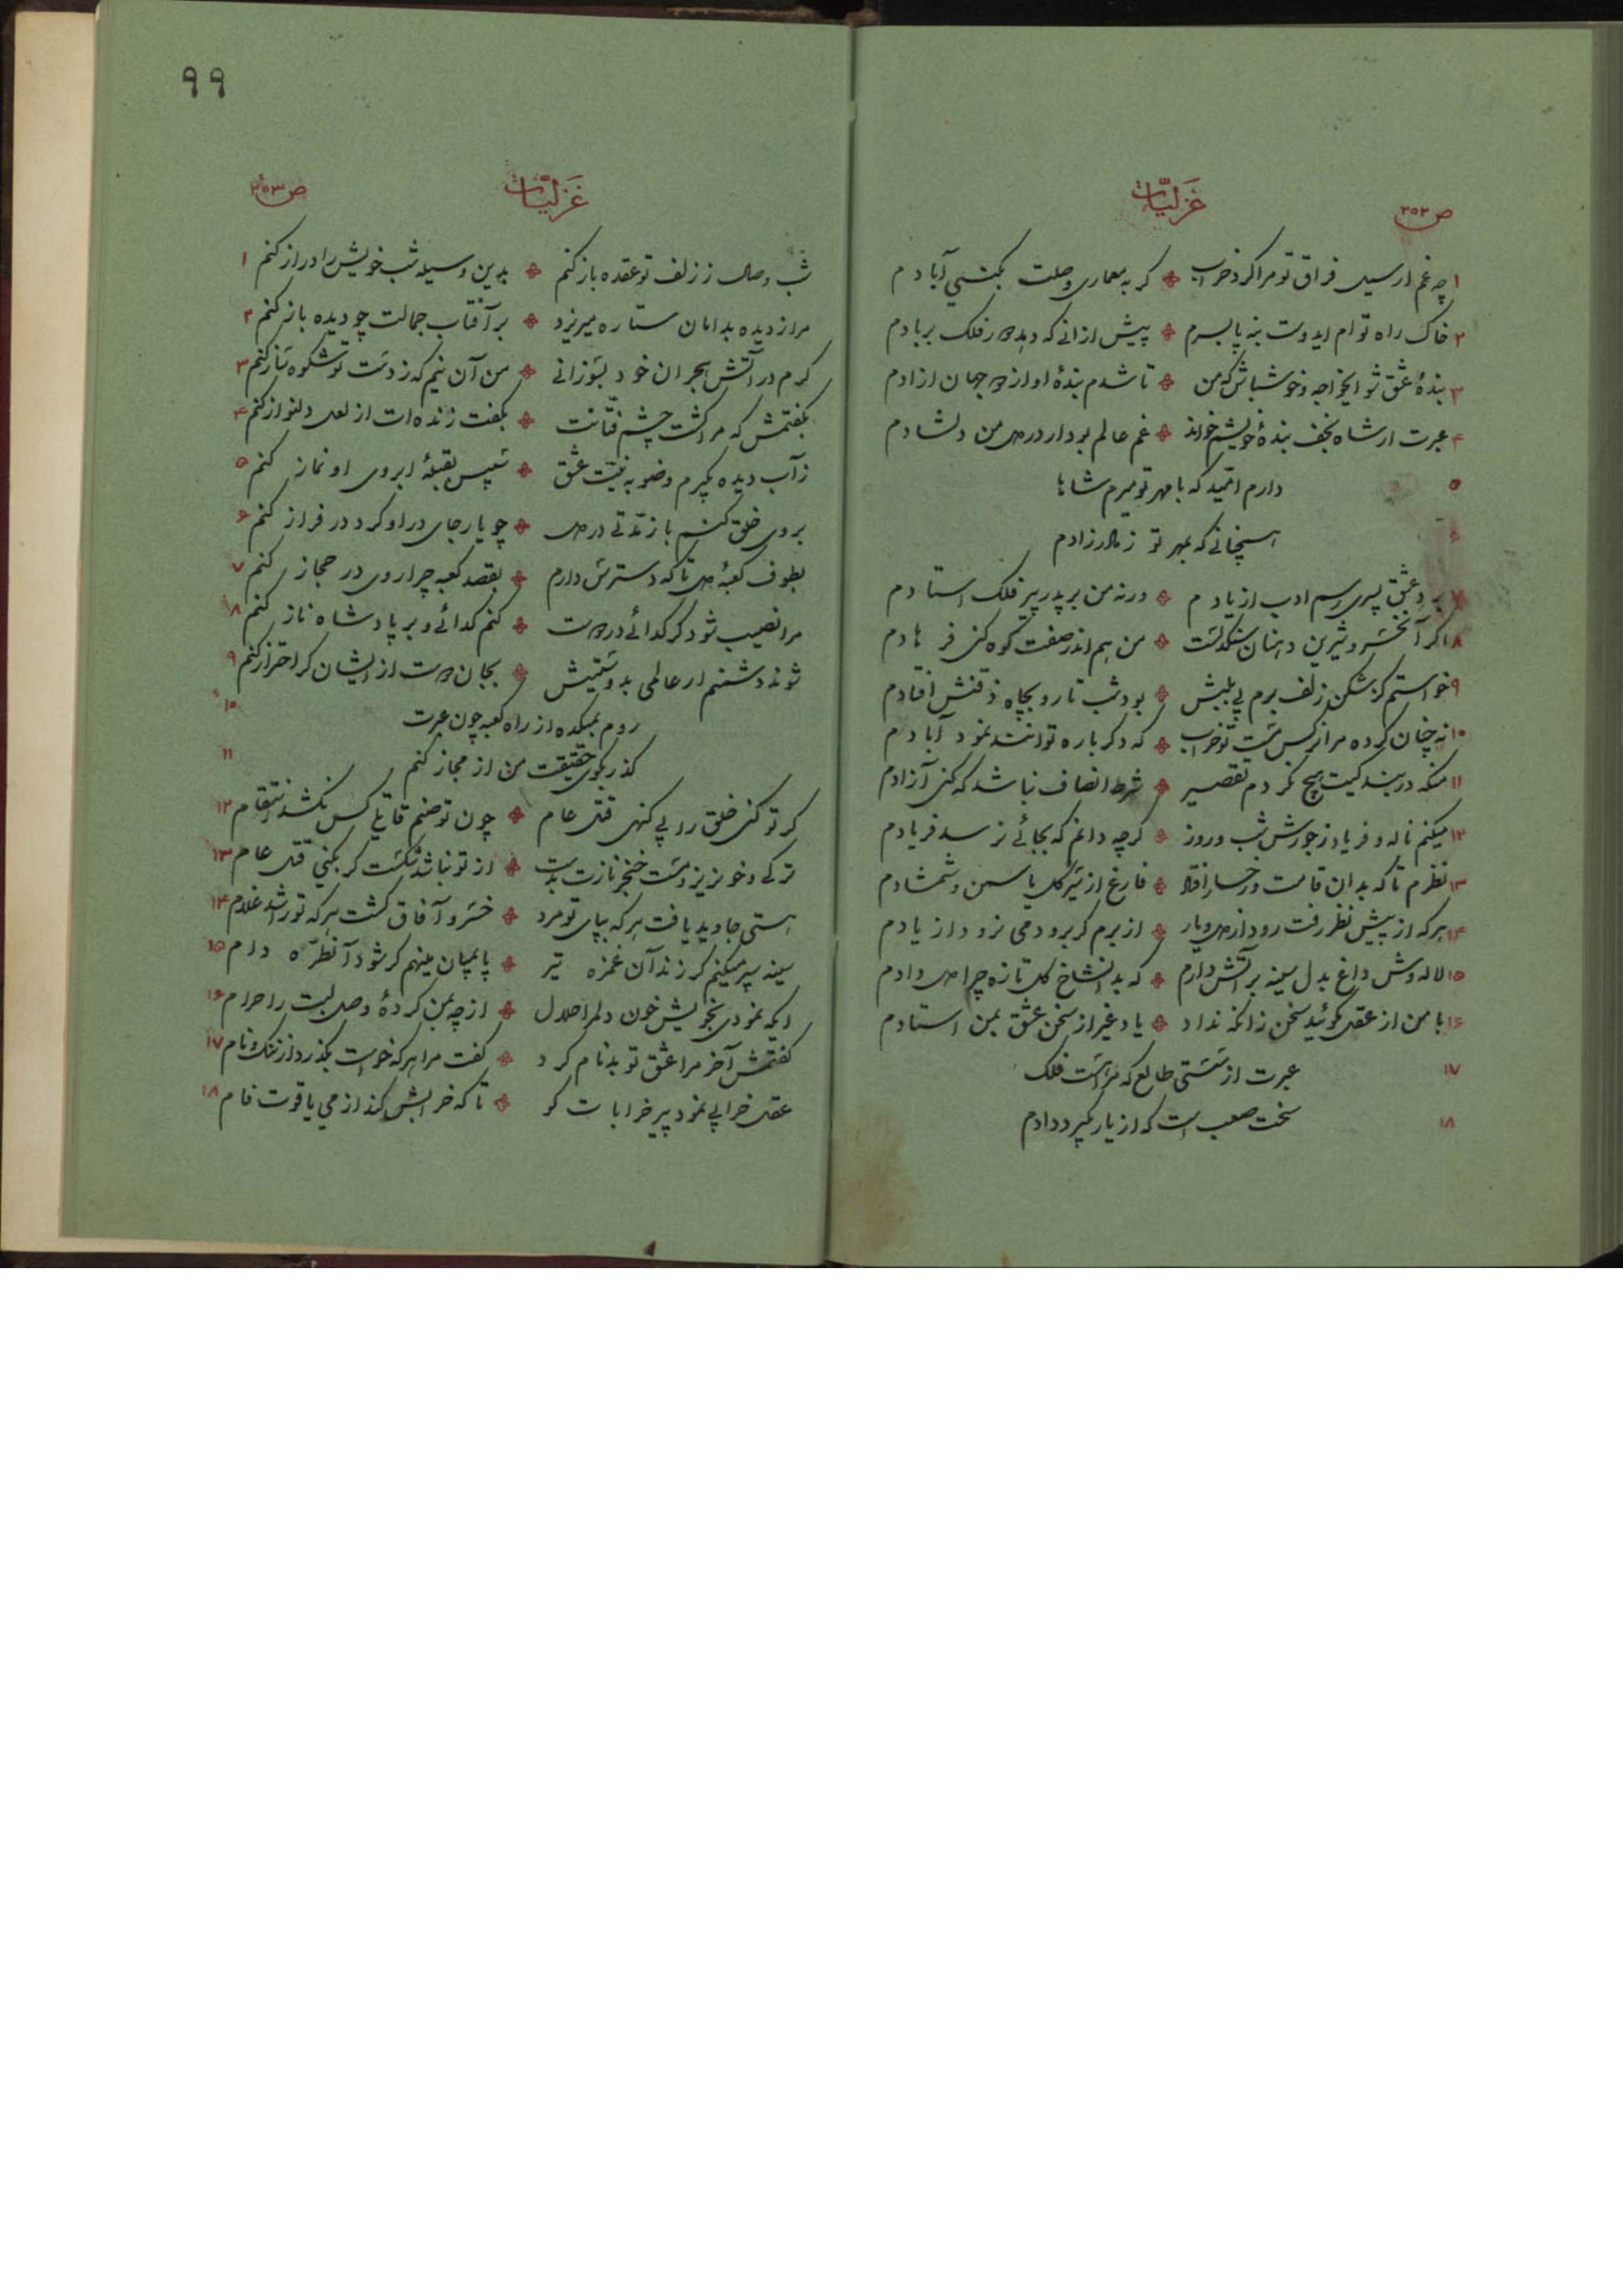 ص ۲۵۲
غزلیّات
۱ چه غم ار سیل فراق تو مرا کرد خراب ٭ گر به معماری وصلت بکنی آبادم
۲ خاک راه توام ایدوست بنه پا بسرم ٭ پیش از آنی که دهد دور فلک بر بادم
۳ بندهٔ عشق شو ایخواجه و خوشباش که من ٭ تا شدم بندهٔ او از دو جهان ازادم
۴ عبرت ار شاه نجف بندهٔ خویشم خواند ٭ غم عالم بود ار در دل من دلشادم
۵ دارم امّید که با مهر تو میرم شاها
۶ همچنانی که بمهر تو ز مادر زادم
۷ برد عشق پسری رسم ادب از یادم ٭ ورنه من بر پدر پیر فلک استادم
۸ اگر آن خسرو شیرین دهنان سنگدلست ٭ من هم اندر صفت کوه کنی فرهادم
۹ خواستم کز شکن زلف برم پی بلبش ٭ بود شب تار و بچاه ذقنش افتادم
۱۰ نه چنان کرده مرا نرگس مست تو خراب ٭ که دگرباره توانند نمود آبادم
۱۱ منکه در بندگیت هیچ نکردم تقصیر ٭ شرط انصاف نباشد که کنی آزادم
۱۲ میکنم ناله و فریاد ز جورش شب و روز ٭ گرچه دانم که بجائی نرسد فریادم
۱۳ نظرم تا که بدان قامت و رخسار افتاد ٭ فارغ از سیر گل و یاسمن و شمشادم
۱۴ هر که از پیش نظر رفت رود از دل و یار ٭ از برم گر برود می نرود از یادم
۱۵ لاله وش داغ بدل سینه پر آتش دارم ٭ که بدانشاخ گل تازه چرا دل دادم
۱۶ با من از عقل مگوئید سخن زانکه نداد ٭ یاد غیر از سخن عشق بمن استادم
۱۷ عبرت از سستی طالع که مراست فلک
۱۸ سخت صعب است که از یار بگیرد دادم
۹۹
ص ۲۵۳
غزلیّات
شب وصال ز زلف تو عقده باز کنم ٭ بدین وسیله شب خویش را دراز کنم ۱
مرا ز دیده بدامان ستاره میریزد ٭ بر آفتاب جمالت چو دیده باز کنم ۲
گرم در آتش هجران خود بسوزانی ٭ من آن نیم که ز دست تو شکوه ساز کنم ۳
بگفتمش که مرا کشت چشم فتّانت ٭ بگفت زنده ات از لعل دلنواز کنم ۴
ز آب دیده بگیرم وضو به نیّت عشق ٭ سپس بقبلهٔ ابروی او نماز کنم ۵
بروی خلق کنم باز تدتی در دل ٭ چو یار جای در او کرد در فراز کنم ۶
بطوف کعبهٔ دل تا که دسترس دارم ٭ بقصد کعبه چرا روی در حجاز کنم ۷
مرا نصیب شود گر گدائی در دوست ٭ کنم گدائی و بر پادشاه ناز کنم ۸
شوند دشمنم ار عالمی بدوستیش ٭ بجان دوست از ایشان گر احتراز کنم ۹
روم بمیکده از راه کعبه چون عبرت ۱۰
گذر بکوی حقیقت من از مجاز کنم ۱۱
گر تو کنی خلق را بی گنهی قتل عام ٭ چون تو صنم قاتلی کس نکشد انتقام ۱۲
ترکی و خونریز و مست خنجر نازت بدست ٭ از تو نباشد شگفت گر بکنی قتل عام ۱۳
هستی جاوید یافت هر که بپای تو مرد ٭ خسرو آفاق گشت هر که تو را شد غلام ۱۴
سینه سپر میکنم گر زند آن غمزه تیر ٭ پا بمیان مینهم گر شود آنطرّه دام ۱۵
ایکه نمودی بخویش خون دلم را حلال ٭ از چه بمن کردهٔ وصل لبت را حرام ۱۶
گفتمش آخر مرا عشق تو بدنام کرد ٭ گفت مرا هر که خواست بگذرد از ننگ و نام ۱۷
عقل خرابی نمود پیر خرابات کو ٭ تا که خرابش کند از می یاقوت فام ۱۸